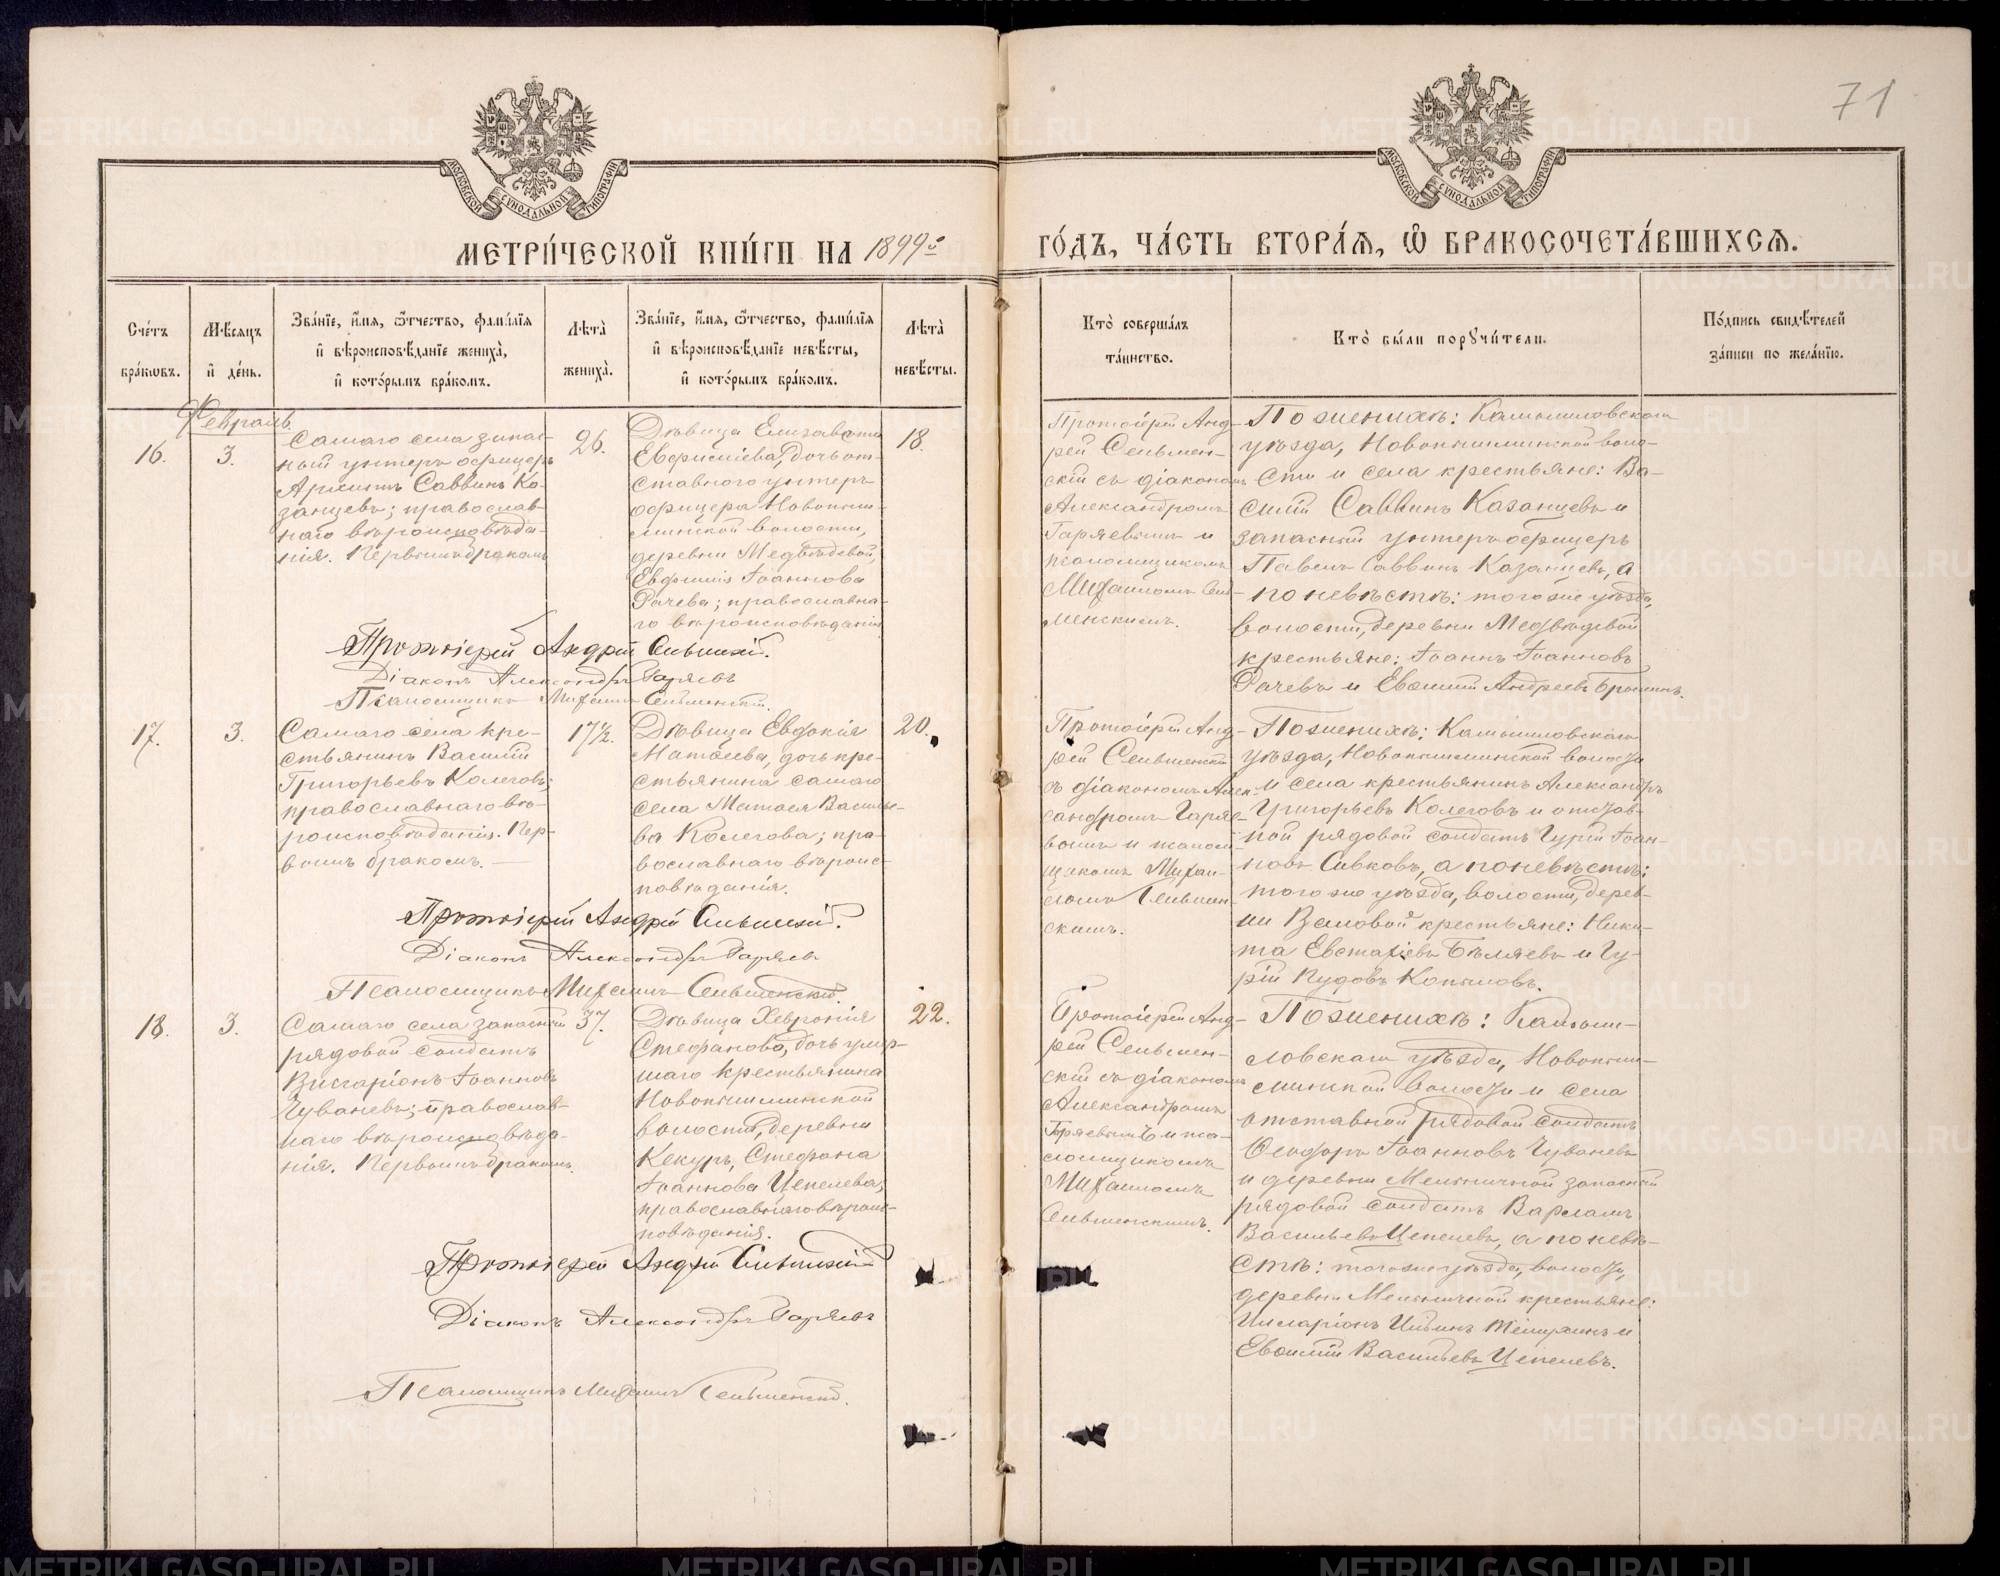 71
МЕТРИ́ЧЕСКОЙ КНИ́ГИ НА 1899й
ГО́ДЪ, ЧА́СТЬ ВТОРА́Я, Ѡ БРАКОСОЧЕТА́ВШИХСЯ.
МОСКОВСКОЙ СѴНОДАЛЬНОЙ ТИПОГРАФІИ
МОСКОВСКОЙ СѴНОДАЛЬНОЙ ТИПОГРАФІИ
Сче́тъ
бра́ковъ.
Мѣ́сяцъ
и де́нь.
Зва́нїе, и́мя, ѻ҆́тчество, фами́лїя
и вѣроисповѣ́данїе жениха̀,
и кото́рымъ бра́комъ.
Лѣ́та
жениха̀.
Зва́нїе, и́мя, ѻ҆́тчество, фами́лїя
и вѣроисповѣ́данїе невѣ́сты,
и кото́рымъ бра́комъ.
Лѣ́та
невѣ́сты.
Кто̀ соверша́лъ
та́инство.
Кто̀ бы́ли порꙋчи́тели.
По́дпись свидѣ́телей
за́писи по жела́нїю.
Февраль
16.
3.
Самаго села запас-
ный унтеръ офицеръ
Саввинъ Ка-
занцевъ; православ-
наго вѣроисповѣда-
нія. Первымъ бракомъ
26.
Дѣвица Елизавета
Евфиміева, дочь от-
ставного унтеръ
офицера Новопыш-
минской волости,
деревни Медвѣдевой,
Евфимія Іоаннова
Рачева; православна-
го вѣроисповѣданія
18.
Протоіерей Анд-
рей Сельмен-
скій съ діакономъ
Александромъ
Гаряевымъ и
псаломщикомъ
Михаиломъ Сель-
менскимъ.
По женихѣ: Камышловскаго
уѣзда, Новопышминской воло-
сти и села крестьяне: Ва-
силій Саввинъ Казанцевъ и
запасный унтеръ офицеръ
Павелъ Саввинъ Казанцевъ, а
по невѣстѣ: того же уѣзда,
волости, деревни Медвѣдевой
крестьяне: Іоаннъ Іоанновъ
Рачевъ и Евфимій Андреевъ
Протоіерей Андрей Сельменскій.
Діаконъ Александръ Гаряевъ
Псаломщикъ Михаилъ Сельменскій.
17.
3.
Самаго села кре-
стьянинъ Василій
Григорьевъ Колеговъ;
православнаго вѣ-
роисповѣданія. Пер-
вымъ бракомъ. —
17½.
Дѣвица Евдокія
Матѳеева, дочь кре-
стьянина самаго
села Матѳея Василье-
ва Колегова; пра-
вославнаго вѣроис-
повѣданія.
20.
Протоіерей Анд-
рей Сельменскій
съ діакономъ Алек-
сандромъ Гаряе-
вымъ и псалом-
щикомъ Михаи-
ломъ Сельмен-
скимъ.
По женихѣ: Камышловскаго
уѣзда, Новопышминской волости
и села крестьянинъ Александръ
Григорьевъ Колеговъ и отстав-
ной рядовой солдатъ Гурій Іоан-
новъ Сивковъ, а по невѣстѣ:
того же уѣзда, волости, дерев-
ни крестьяне: Ники-
та Евстафіевъ Бѣляевъ и Гу-
рій Пудовъ Копыловъ.
Протоіерей Андрей Сельменскій.
Діаконъ Александръ Гаряевъ
Псаломщикъ Михаилъ Сельменскій.
18.
3.
Самаго села запасный
рядовой солдатъ
Виссаріонъ Іоанновъ
Чуваневъ; православ-
наго вѣроисповѣда-
нія. Первымъ бракомъ.
37.
Дѣвица Хевронія
Стефанова, дочь умер-
шаго крестьянина
Новопышминской
волости, деревни
Кекуръ, Стефана
Іоаннова Цепелева;
православнаго вѣроис-
повѣданія.
22.
Протоіерей Анд-
рей Сельмен-
скій съ діакономъ
Александромъ
Гаряевымъ и пса-
ломщикомъ
Михаиломъ
Сельменскимъ.
По женихѣ: Камыш-
ловскаго уѣзда, Новопыш-
минской волости и села
отставной рядовой солдатъ
Ѳеодоръ Іоанновъ Чуваневъ
и деревни Мельничной запасный
рядовой солдатъ Варлаамъ
Васильевъ Цепелевъ, а по невѣ-
стѣ: того же уѣзда, волости,
деревни Мельничной крестьяне:
Илларіонъ Ильинъ и
Евфимій Васильевъ Цепелевъ.
Протоіерей Андрей Сельменскій
Діаконъ Александръ Гаряевъ
Псаломщикъ Михаилъ Сельменскій.
METRIKI.GASO-URAL.RU